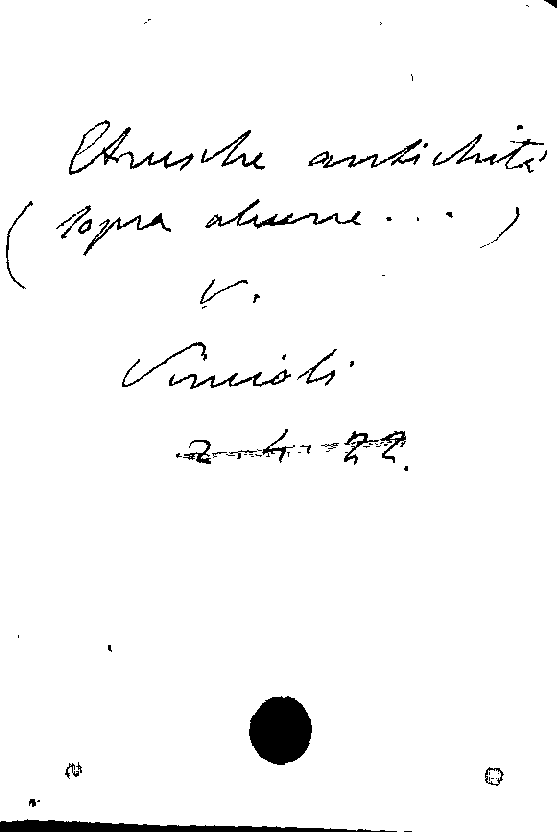 Etrusche antichità
(sopra alcune ... )
v.
Vincioli
2. 4. 22.